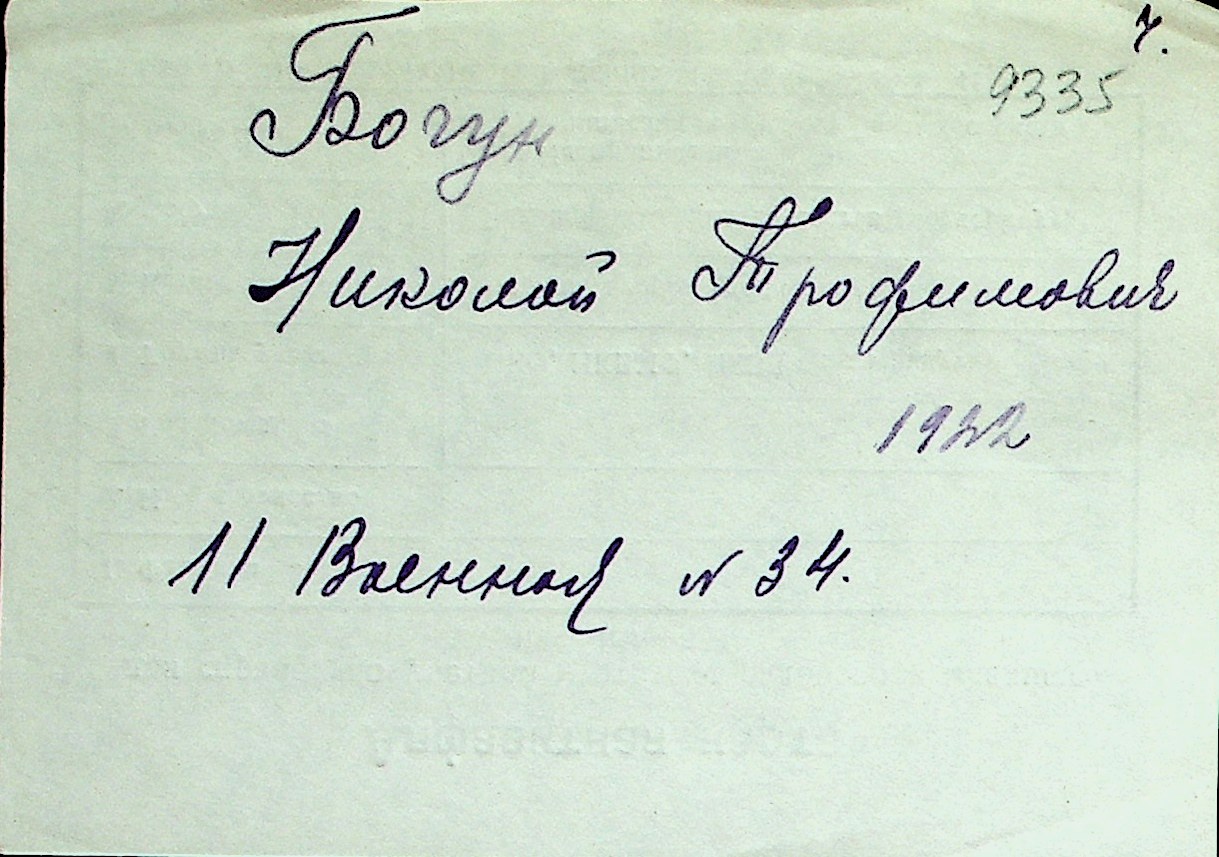 ч.
9335
Богун
Николай Трофимович
1922
11 Военная № 34.